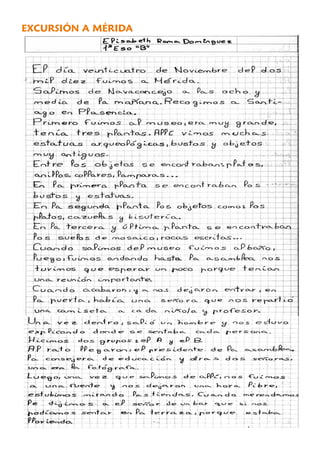 EXCURSIÓN A MÉRIDA
Elisabeth Rama Domínguez
1º Eso "B"
El día veinticuatro de Noviembre del dos
mil diez fuimos a Mérida.
Salimos de Navaconcejo a las ocho y
media de la mañana. Recogimos a Santi-
ago en Plasencia.
Primero fuimos al museo, era muy grande,
tenía tres plantas. Allí vimos muchas
estatuas arqueológicas, bustos y objetos
muy antiguos.
Entre los objetos se encontraban: platos,
anillos, collares, lámparas...
En la primera planta se encontraban los
bustos y estatuas.
En la segunda planta los objetos como: los
platos, cazuelas y bisutería.
En la tercera y última planta se encontraban
los suelos de mosaico, rocas escritas...
Cuando salimos del museo fuimos al baño,
luego, fuimos andando hasta la asamblea, nos
tuvimos que esperar un poco porque tenían
una reunión importante.
Cuando acabaron, ya nos dejaron entrar, en
la puerta, había una señora que nos repartió
una camiseta a cada niño/a y profesor.
Una vez dentro, salió un hombre y nos estuvo
explicando donde se sentaba cada persona.
Hicimos dos grupos: el A y el B.
Al rato llegaron: el presidente de la asamblea,
la consejera de educación y otras dos señoras,
una era la fotógrafa.
Luego, una vez que salimos de allí, nos fuimos
a una fuente y nos dejaron una hora libre,
estubimos mirando las tiendas. Cuando merendamos
le dijimos a el señor de un bar que si nos
podíamos sentar en la terraza, porque estaba
lloviendo.